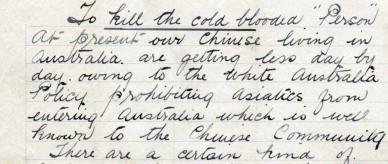 To kill the cold blooded "Person"
At present our Chinese living in
Australia. are getting less day by
day. owing to the White Australia
Policy prohibiting Asiatics from
entering Australia which is well
known to the Chinese Community
There are a certain kind of